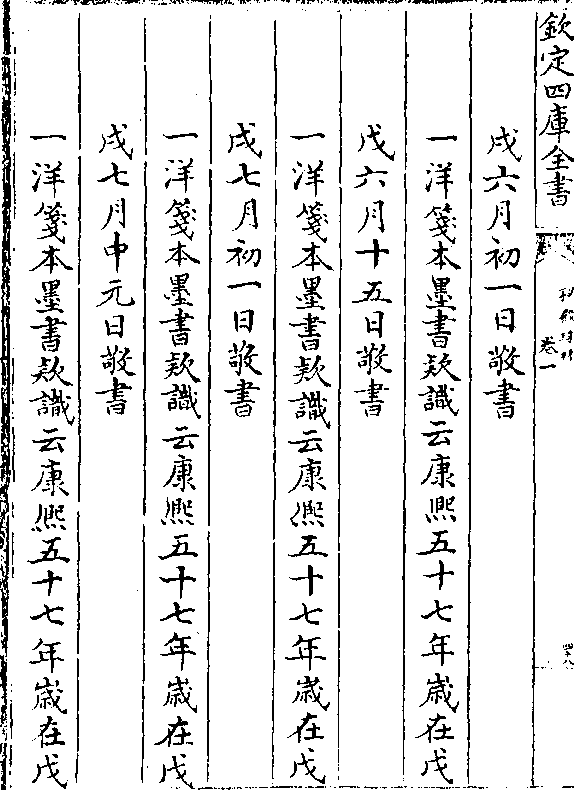 欽定四庫全書
秘殿珠林
卷一
戌六月初一日敬書
一洋箋本墨書欵識云康熙五十七年歲在戊
戌六月十五日敬書
一洋箋本墨書欵識云康熙五十七年歲在戊
戌七月初一日敬書
一洋箋本墨書欵識云康熙五十七年歲在戊
戌七月中元日敬書
一洋箋本墨書欵識云康熙五十七年歲在戊